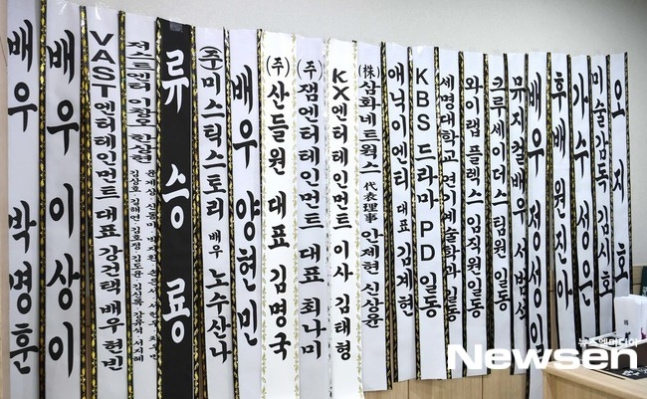 배우 박명훈
배우 이상이
VAST엔터테인먼트 대표 강건택 배우 현빈
류승룡
㈜미스틱스토리 배우 노수산나
배우 양현민
(주)산들원 대표 김명국
(주)잼엔터테인먼트 대표 최나미
KX엔터테인먼트 이사 김태형
(株)삼화네트웍스 代表理事 안제현 신상윤
애닉이엔티 대표 김계현
KBS 드라마 PD 일동
세명대학교 연기예술학과 일동
와이랩 플렉스 임직원일동
크루세이더스 팀원 일동
뮤지컬배우 서범석
배우 정성일
후배 원진아
가수 성시경
미술감독 김시효
오지호
뉴스엔미디어
Newsen